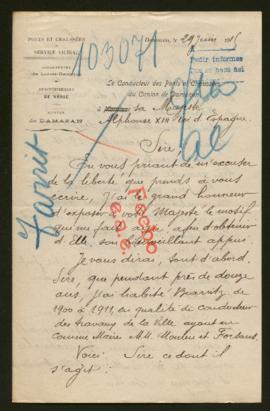 PONTS ET CHAUSSÉES
SERVICE VICINAL
DÉPARTEMENT
de Lot-et-Garonne
ARRONDISSEMENT
DE NÉRAC
CANTON
de DAMAZAN
103071
Damazan, le 29 juin 1915
Pedir informes
Le Conducteur des Ponts et Chaussées
du Canton de Damazan
à Sa Majesté
Alphonse XIII roi d'Espagne.
Sire,
En vous priant de m'excuser
de la liberté que prends à vous
écrire, j'ai le grand honneur
d'exposer à votre Majesté le motif
qui me fait agir, afin d'obtenir
d'Elle son bienveillant appui
Je vous dirai, tout d'abord,
Sire, que pendant près de douze
ans, j'ai habité Biarritz, de
1900 à 1911 en qualité de conducteur
des travaux de la Ville ayant eu
comme Maires M.M. et Forsans.
Voici Sire ce dont il
s'agit :
Fecho